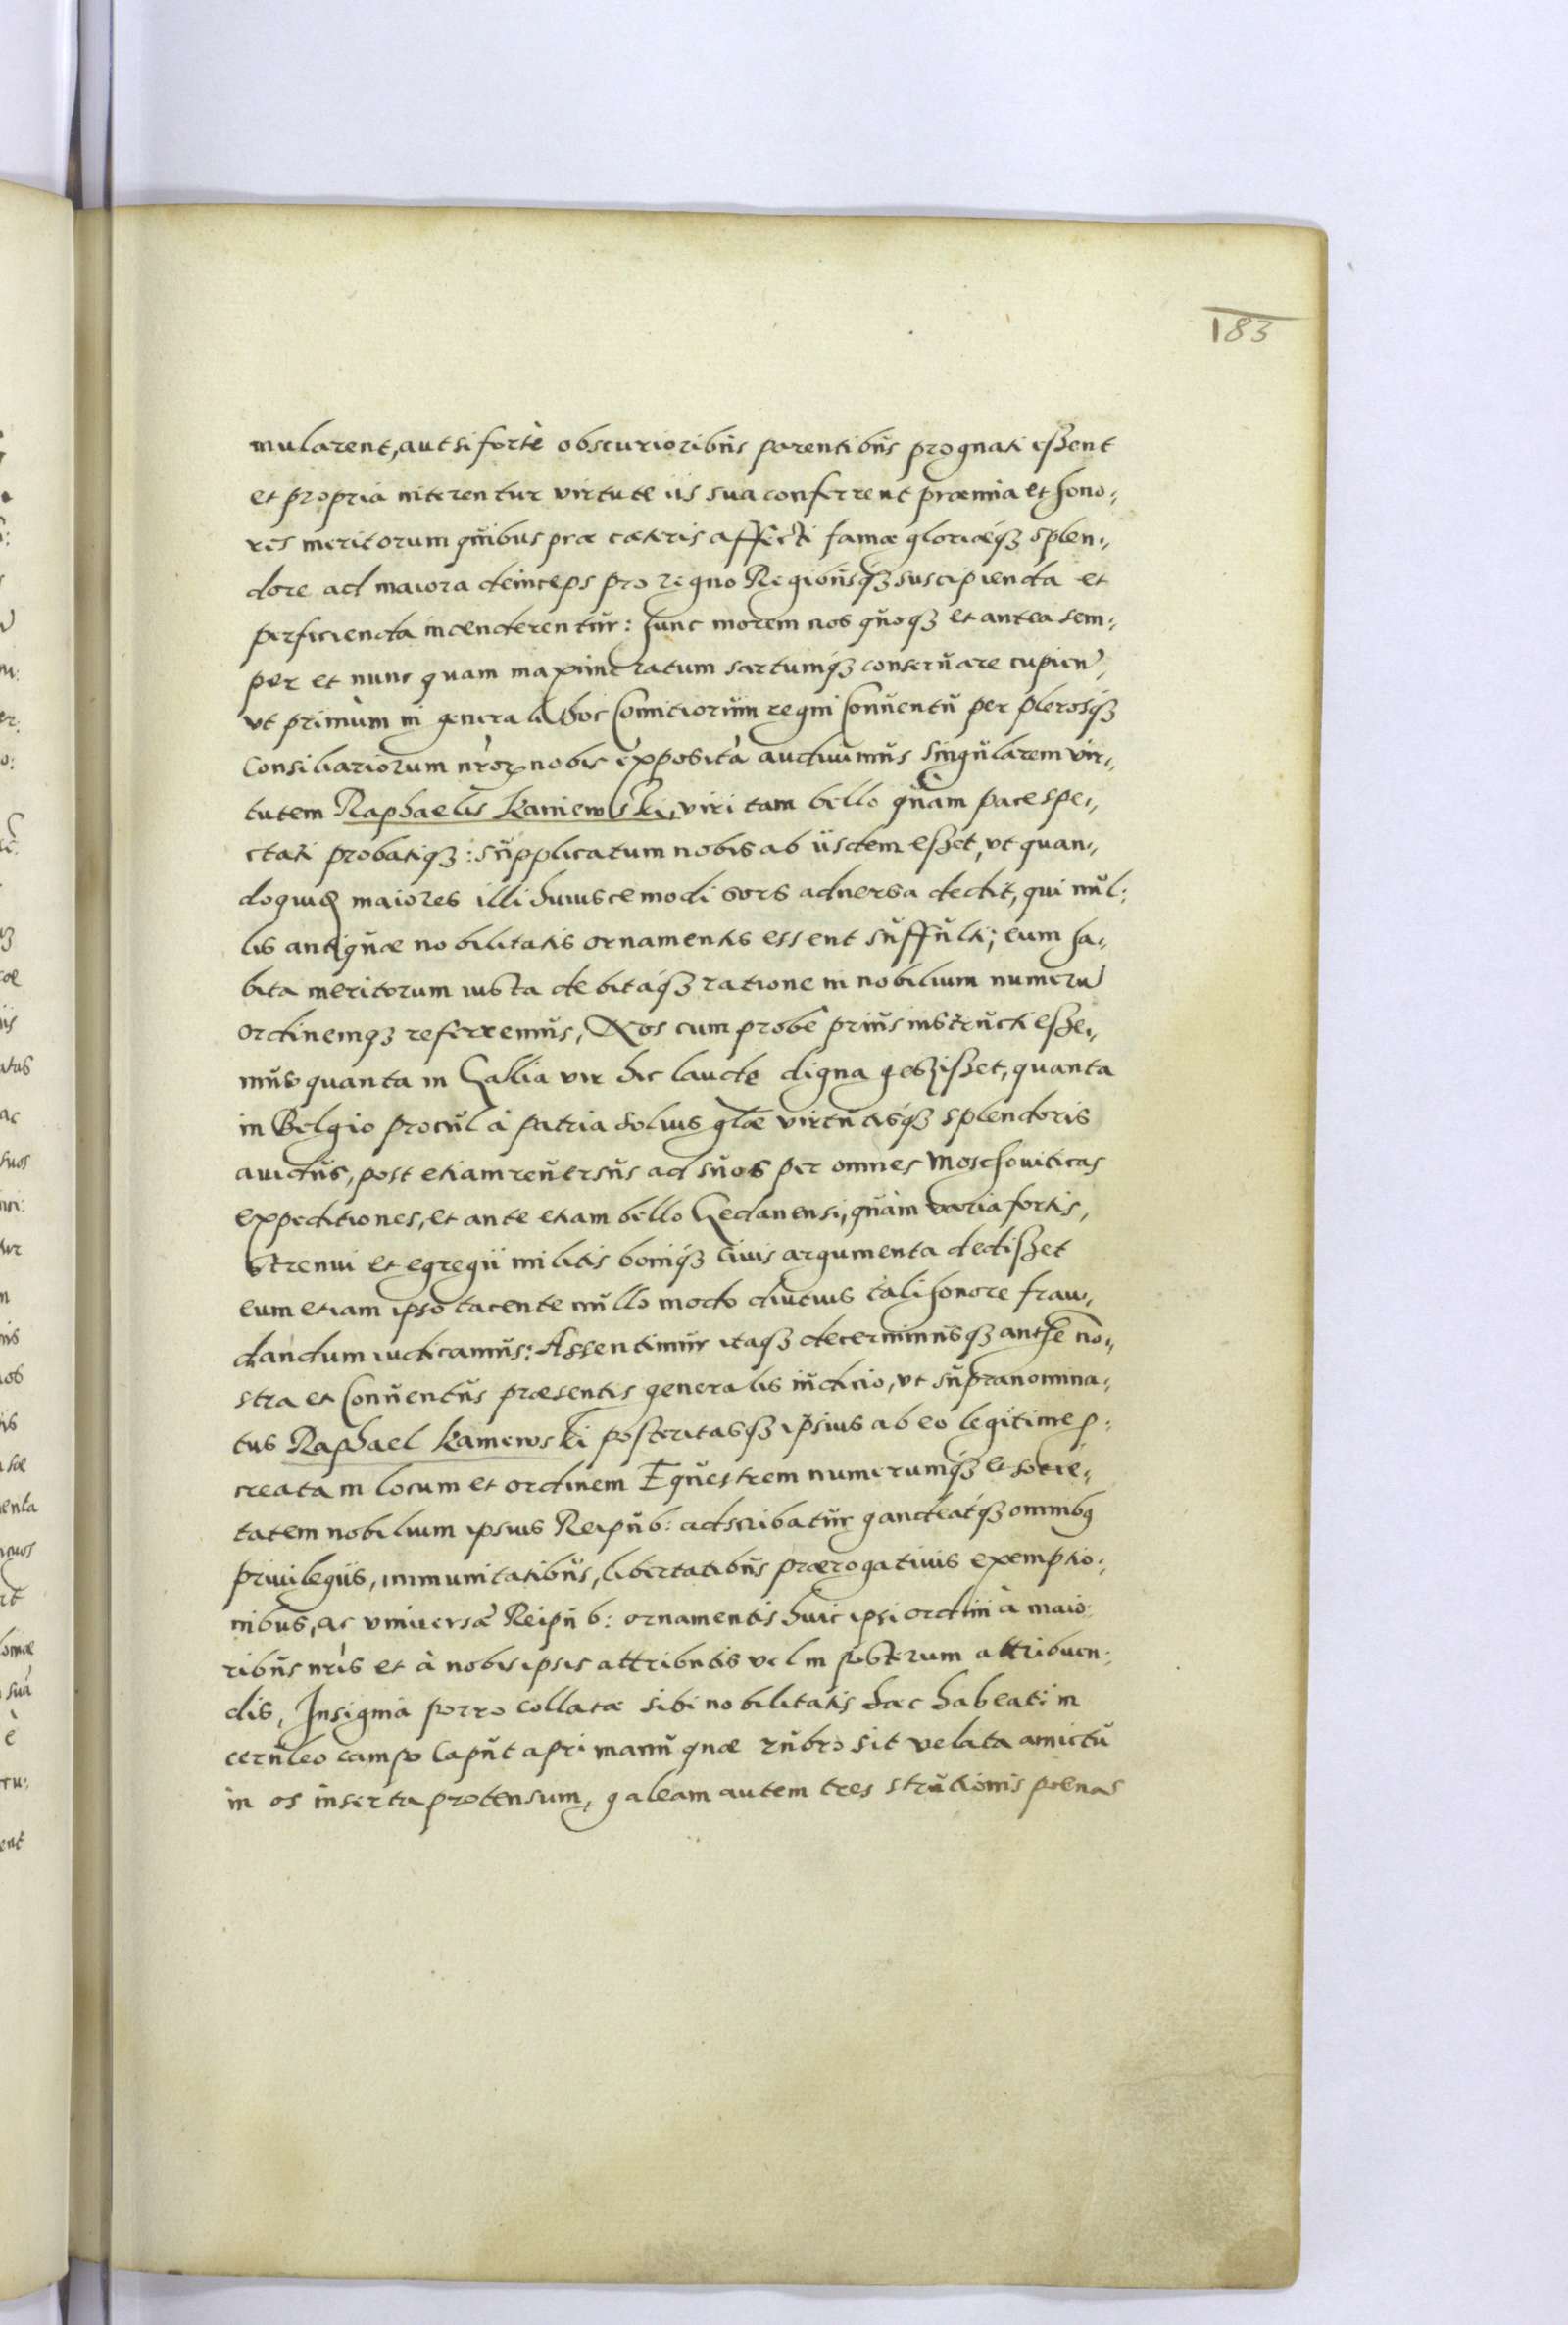 183
mularent, aut si fortè obscurioribus parentibus prognati essent
et propria niterentur virtute iis sua conferrent præmia et hono:
res meritorum quibus præ cæteris affecti famæ gloriæq₃ splen:
dore ad maiora deinceps pro regno Regibusq₃ suscipienda et
perficienda incenderentur: hunc morem nos quoq₃ et antea sem:
per et nunc quam maxime ratum sartumq₃ conseruare cupien̄,
vt primùm in generali hoc Comitiorum regni Conuentu per plerosq₃
Consiliariorum nr̄or̄ nobis exposita audiuimus singularem vir:
tutem Raphaelis Kaniewski, viri tam bello quàm pace spe:
ctati probatiq₃: supplicatum nobis ab iisdem esset, vt quan:
doquiđ maiores illi huiuscemodi sors aduersa dedit, qui nul:
lis antiquæ nobilitatis ornamentis essent suffulti; eum ha:
bita meritorum iusta debitaq₃ ratione in nobilium numerū
ordinemq₃ referremus, Nos cum probe prius instructi esse:
mus quanta in Gallia vir hic laude digna gessisset, quanta
in Belgio procul à patria solius glæ virtutisq₃ splendoris
auidus, post etiam reuersus ad suos per omnes Moschouiticas
expeditiones, et ante etiam bello Gedanensi, quàm varia fortis,
strenui et egregii militis boniq₃ ciuis argumenta dedisset
eum etiam ipso tacente nullo modo diutius tali honore frau:
dandum iudicamus: Assentimur itaq₃ decernimusq₃ authē no:
stra et Conuentus præsentis generalis iudicio, vt supranomina:
tus Raphael Kaniewski posteritasq₃ ipsius ab eo legitime p:
creata in locum et ordinem Equestrem numerumq₃ et socie:
tatem nobilium ipsius Reipub: adscribatur gaudeatq₃ omnibꝫ
priuilegiis, immunitatibus, libertatibus prærogatiuis exemptio:
nibus, ac vniuersæ Reipub: ornamentis huic ipsi ordini à maio
ribus nr̄is et à nobis ipsis attributis vel in posterum attribuen:
dis, Insignia porro collatæ sibi nobilitatis hæc habeat: in
ceruleo campo Caput apri manu quæ rubro sit velata amictu
in os inserta protensum, galeam autem tres strutionis poenas